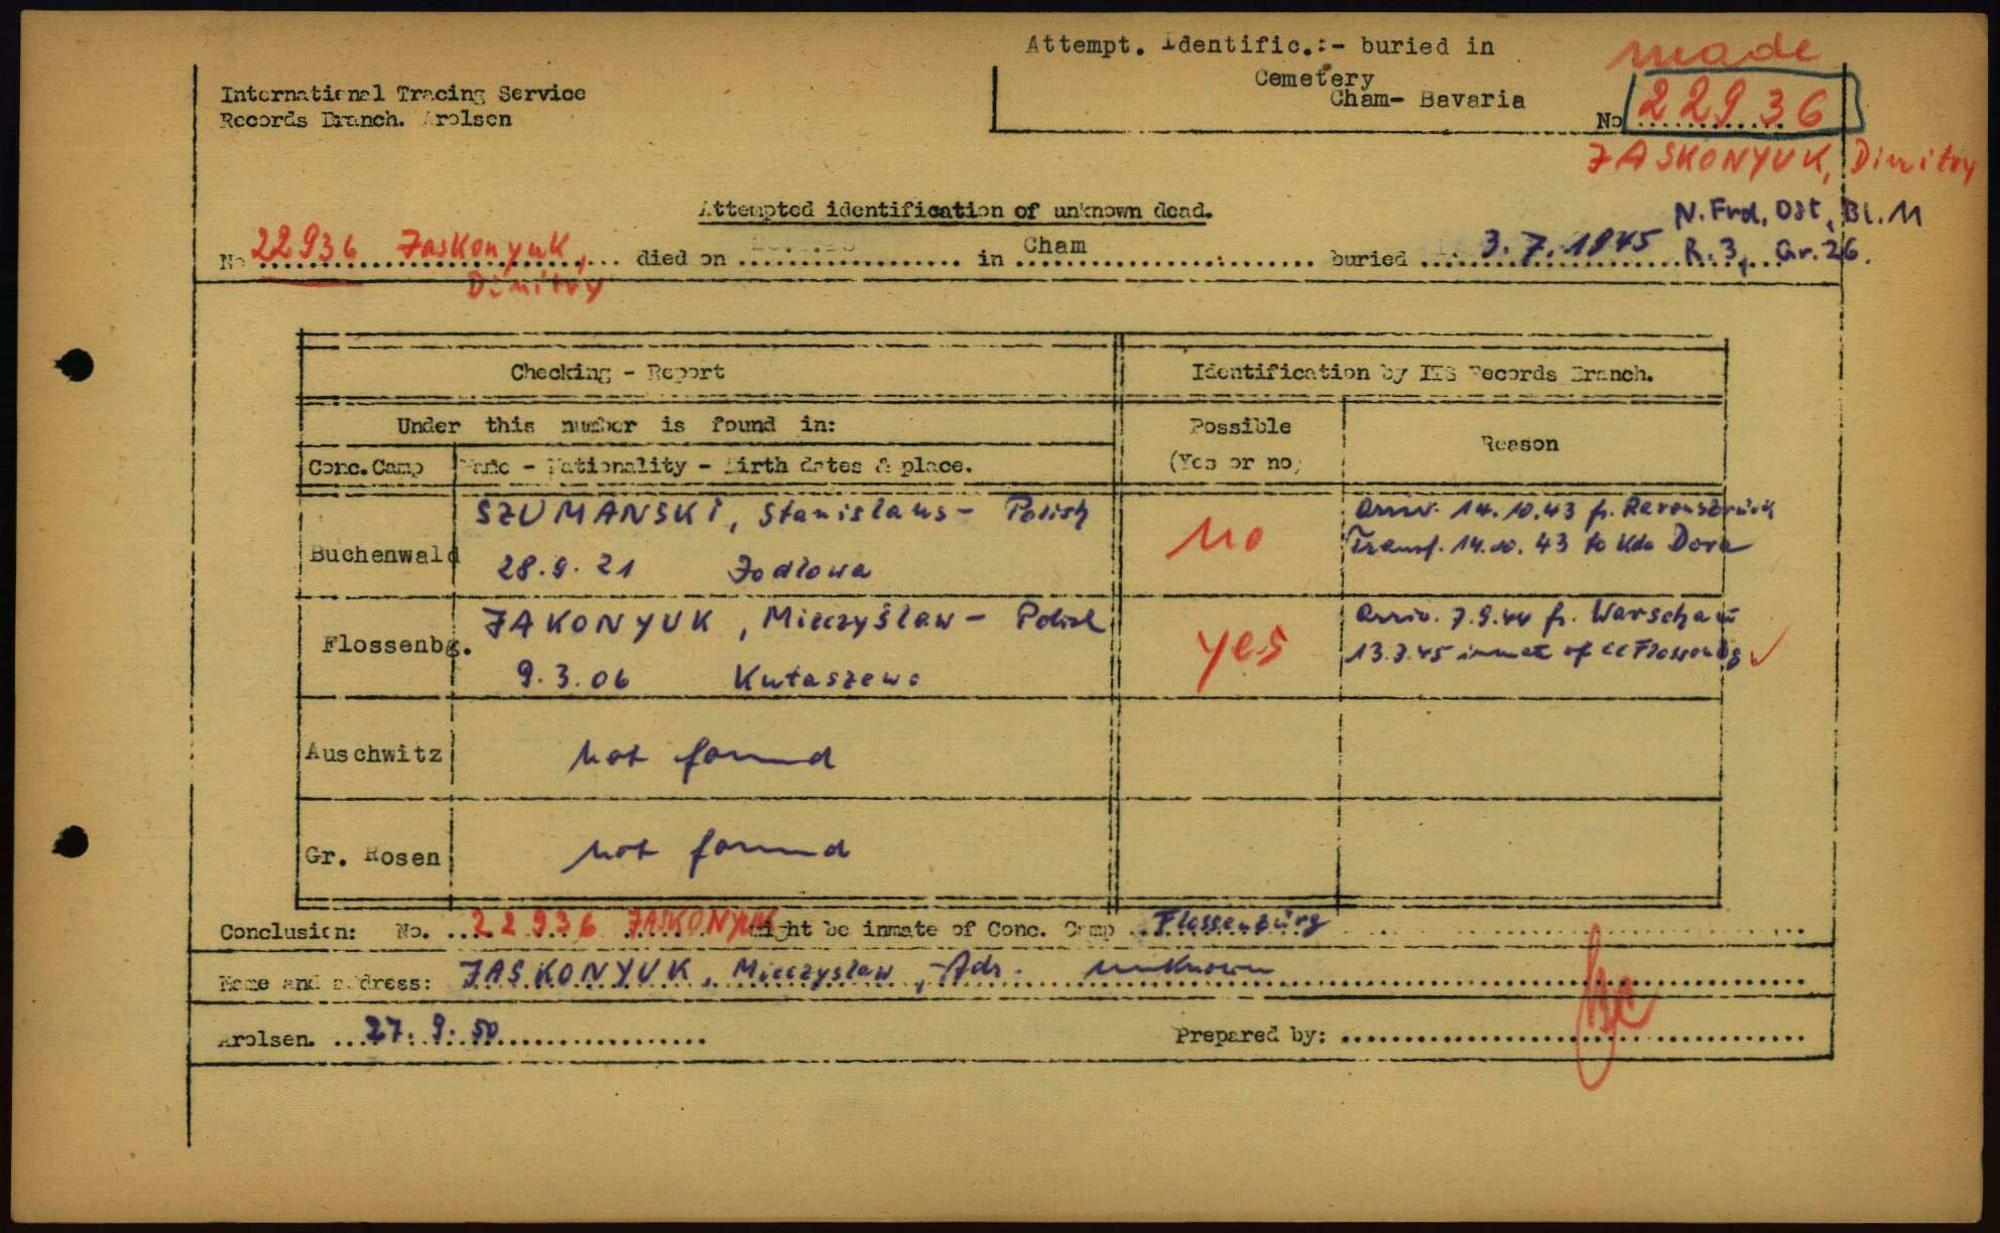 Attempt. Identific.:- buried in
Cemetery
Cham- Bavaria
made
No 22936
JASKONYUK, Dimitry
International Tracing Service
Records Branch. Arolsen
Attempted identification of unknown dead.
N. Frd, Ost, Bl. 11
R. 3, Gr. 26.
No 22936 Jaskonyuk, Dimitry died on .................. in Cham buried 3.7.1945
Checking - Report
Identification by ITS Records Branch.
Under this number is found in:
Possible
(Yes or no)
Reason
Conc. Camp
Name - Nationality - Birth dates & place.
Buchenwald
SZUMANSKI, Stanislaus - Polish
28.9.21 Jodlowa
no
Arriv. 14.10.43 fr. Ravensbrück
Transf. 14.10.43 to Kdo Dora
Flossenbg.
JAKONYUK, Mieczyślaw - Polish
9.3.06 Kutaszewo
yes
Arriv. 7.9.44 fr. Warschau
13.3.45 inmate of CC Flossenbg ✓
Auschwitz
not found
Gr. Rosen
not found
Conclusion: No. 22936 JASKONYUK might be inmate of Conc. Camp Flossenbürg
Name and address: JASKONYUK, Mieczyslaw, Adr. unknown
Arolsen. 27.9.50
Prepared by: